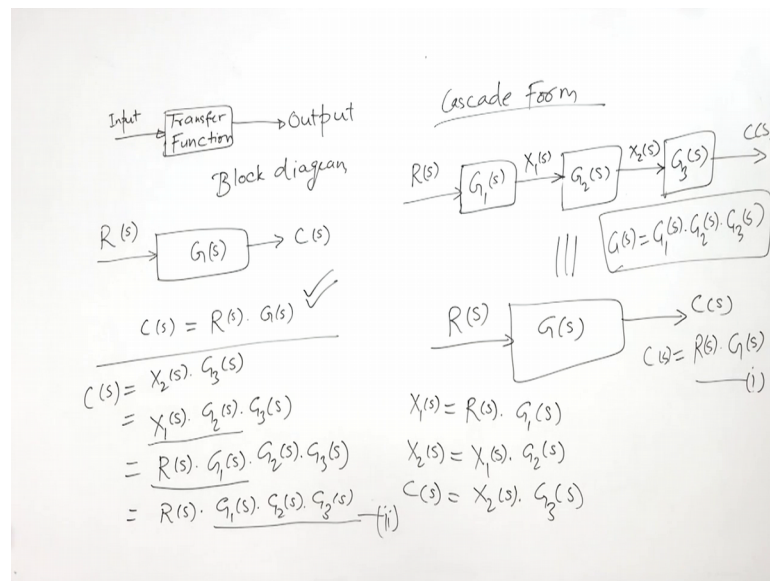 Input
Transfer
Function
Output
Block diagram
R(s)
G(s)
C(s)
C(s) = R(s). G(s)
C(s) = X₂(s). G₃(s)
= X₁(s). G₂(s). G₃(s)
= R(s). G₁(s). G₂(s). G₃(s)
= R(s). G₁(s). G₂(s). G₃(s) —(ii)
Cascade Form
R(s)
G₁(s)
X₁(s)
G₂(s)
X₂(s)
G₃(s)
C(s
G(s)=G₁(s).G₂(s).G₃(s)
R(s)
G(s)
C(s)
C(s)= R(s). G(s)
—(i)
X₁(s)= R(s). G₁(s)
X₂(s)= X₁(s). G₂(s)
C(s)= X₂(s). G₃(s)